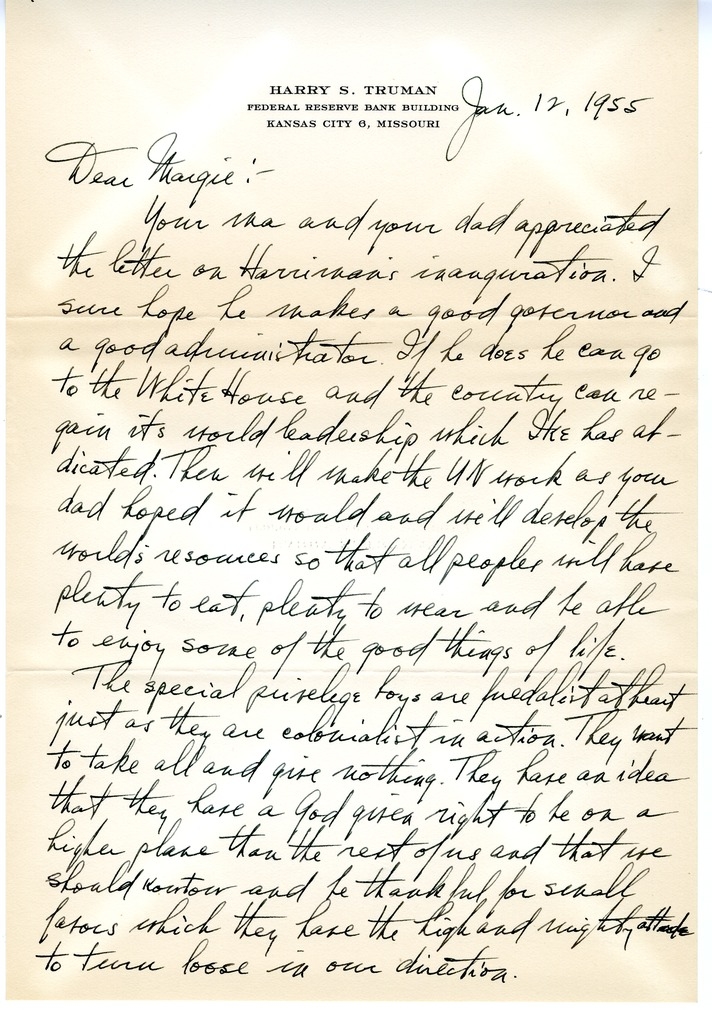 HARRY S. TRUMAN
FEDERAL RESERVE BANK BUILDING
KANSAS CITY 6, MISSOURI
Jan. 12, 1955
Dear Margie:-
Your ma and your dad appreciated
the letter on Harriman's inauguration. I
sure hope he makes a good governor and
a good administrator. If he does he can go
to the White House and the country can re-
gain its world leadership which Ike has ab-
dicated. Then we'll make the UN work as your
dad hoped it would and we'll develop the
world's resources so that all peoples will have
plenty to eat, plenty to wear and be able
to enjoy some of the good things of life.
The special privelege boys are fuedalist at heart
just as they are colonialist in action. They want
to take all and give nothing. They have an idea
that they have a God given right to be on a
higher plane than the rest of us and that we
should kowtow and be thankful for small
favors which they have the high and mighty
to turn loose in our direction.